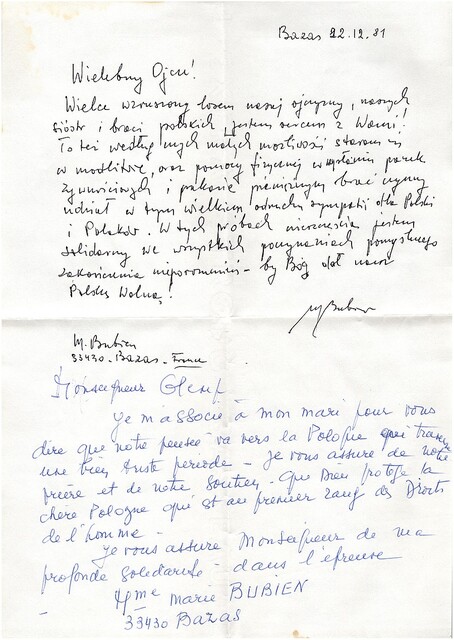 Bazas 22.12.81
Wielebny Ojcze!
Wielce wzruszony losem naszej ojczyzny, naszych
sióstr i braci polskich, jestem sercem z Wami!
To też według mych małych możliwości staram się
w modlitwie, oraz pomocy fizycznej w wysłaniu paczek
żywnościowych i pieniężnym brać czynny
udział w tym wielkim odruchu sympatii dla Polski
i Polaków. W tych próbach nieszczęścia jestem
solidarny we wszystkich poczynaniach pomyślnego
zakończenia nieporozumień - by Bóg dał nam
Polskę Wolną!
M Bubien
M. Bubien
33430 - Bazas - France
Monseigneur
Je m'associe à mon mari pour vous
dire que notre pensée va vers la Pologne qui traverse
une bien triste période - Je vous assure de notre
prière et de notre soutien - Que Dieu protège la
chère Pologne qui est au premier rang des Droits
de l'homme -
Je vous assure Monseigneur de ma
profonde solidarité - dans l'épreuve
- Mme Marie BUBIEN
33430 Bazas